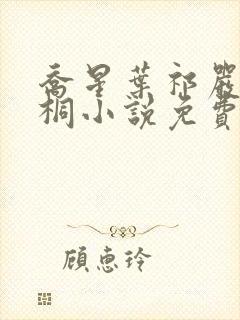 喬星葉祁嚴
桐小說免費
顧惠玲